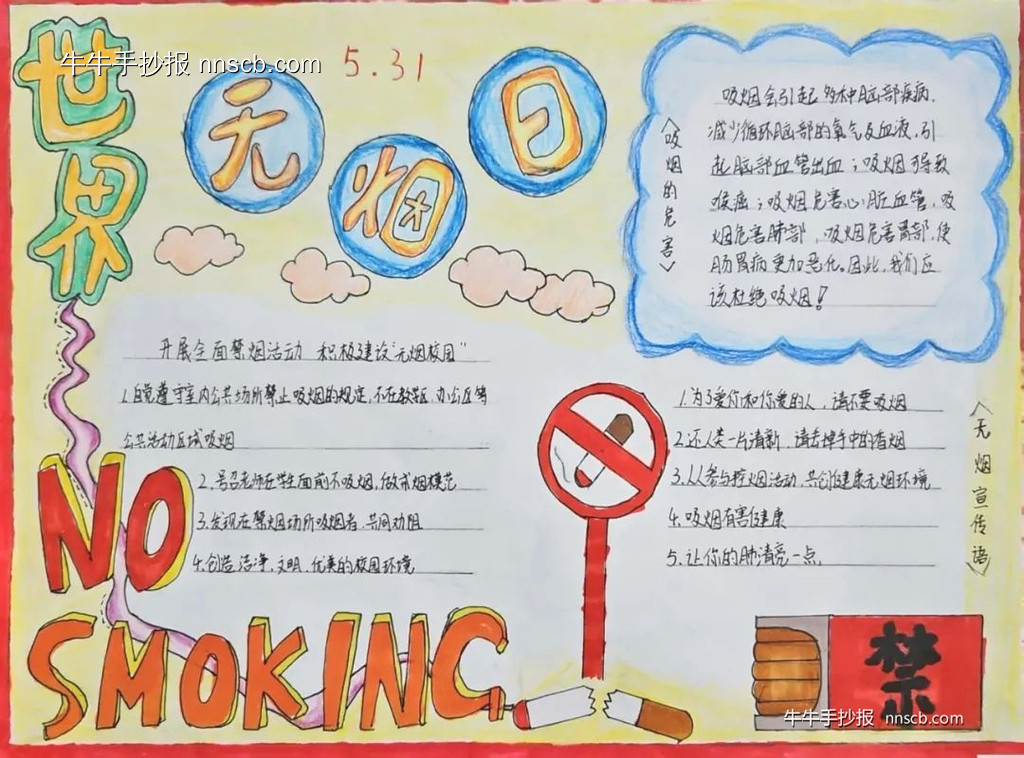 世界
牛牛手抄报 nnscb.com
5.31
无烟日
<吸烟的危害>
吸烟会引起多种脑部疾病.
减少循环脑部的氧气及血液,引
起脑部血管出血;吸烟可导致
喉癌;吸烟危害心脏血管,吸
烟危害肺部,吸烟危害胃部,使
肠胃病更加恶化。因此,我们应
该杜绝吸烟!
开展全面禁烟活动 积极建设"无烟校园"
1.自觉遵守室内公共场所禁止吸烟的规定,不在教学区,办公区等
公共活动区域吸烟
2.号召老师在学生面前不吸烟,做戒烟模范
3.发现在禁烟场所吸烟者,共同劝阻
4.创造洁净,文明,优美的校园环境
1.为了爱你和你爱的人,请不要吸烟
2.还人类一片清新,请丢掉手中的香烟
3.从参与控烟活动,共创健康无烟环境
4.吸烟有害健康
5.让你的肺清亮一点.
<无烟宣传语>
NO
SMOKING
禁
牛牛手抄报 nnscb.com